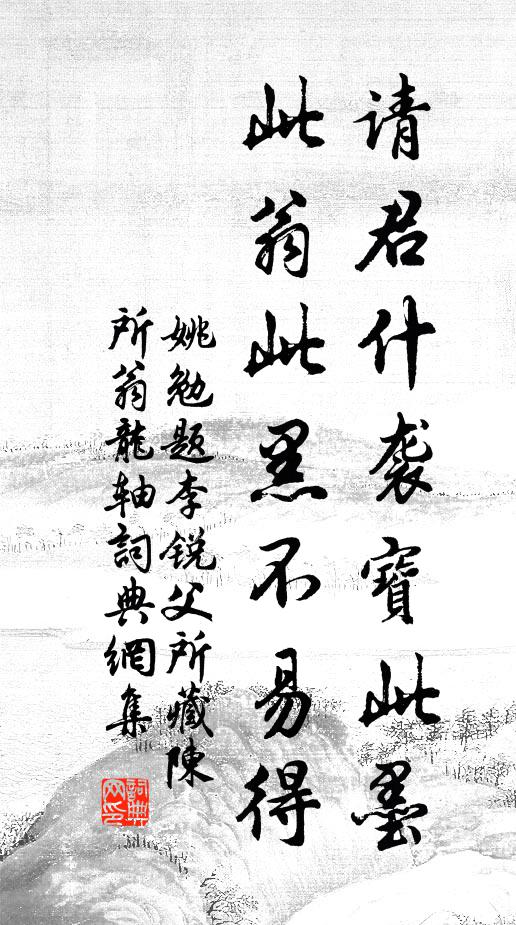 请君什袭寶此墨
此翁此黑不易得
姚勉题李锐父所藏陳
所翁龍轴詞典網集
詞典
网印